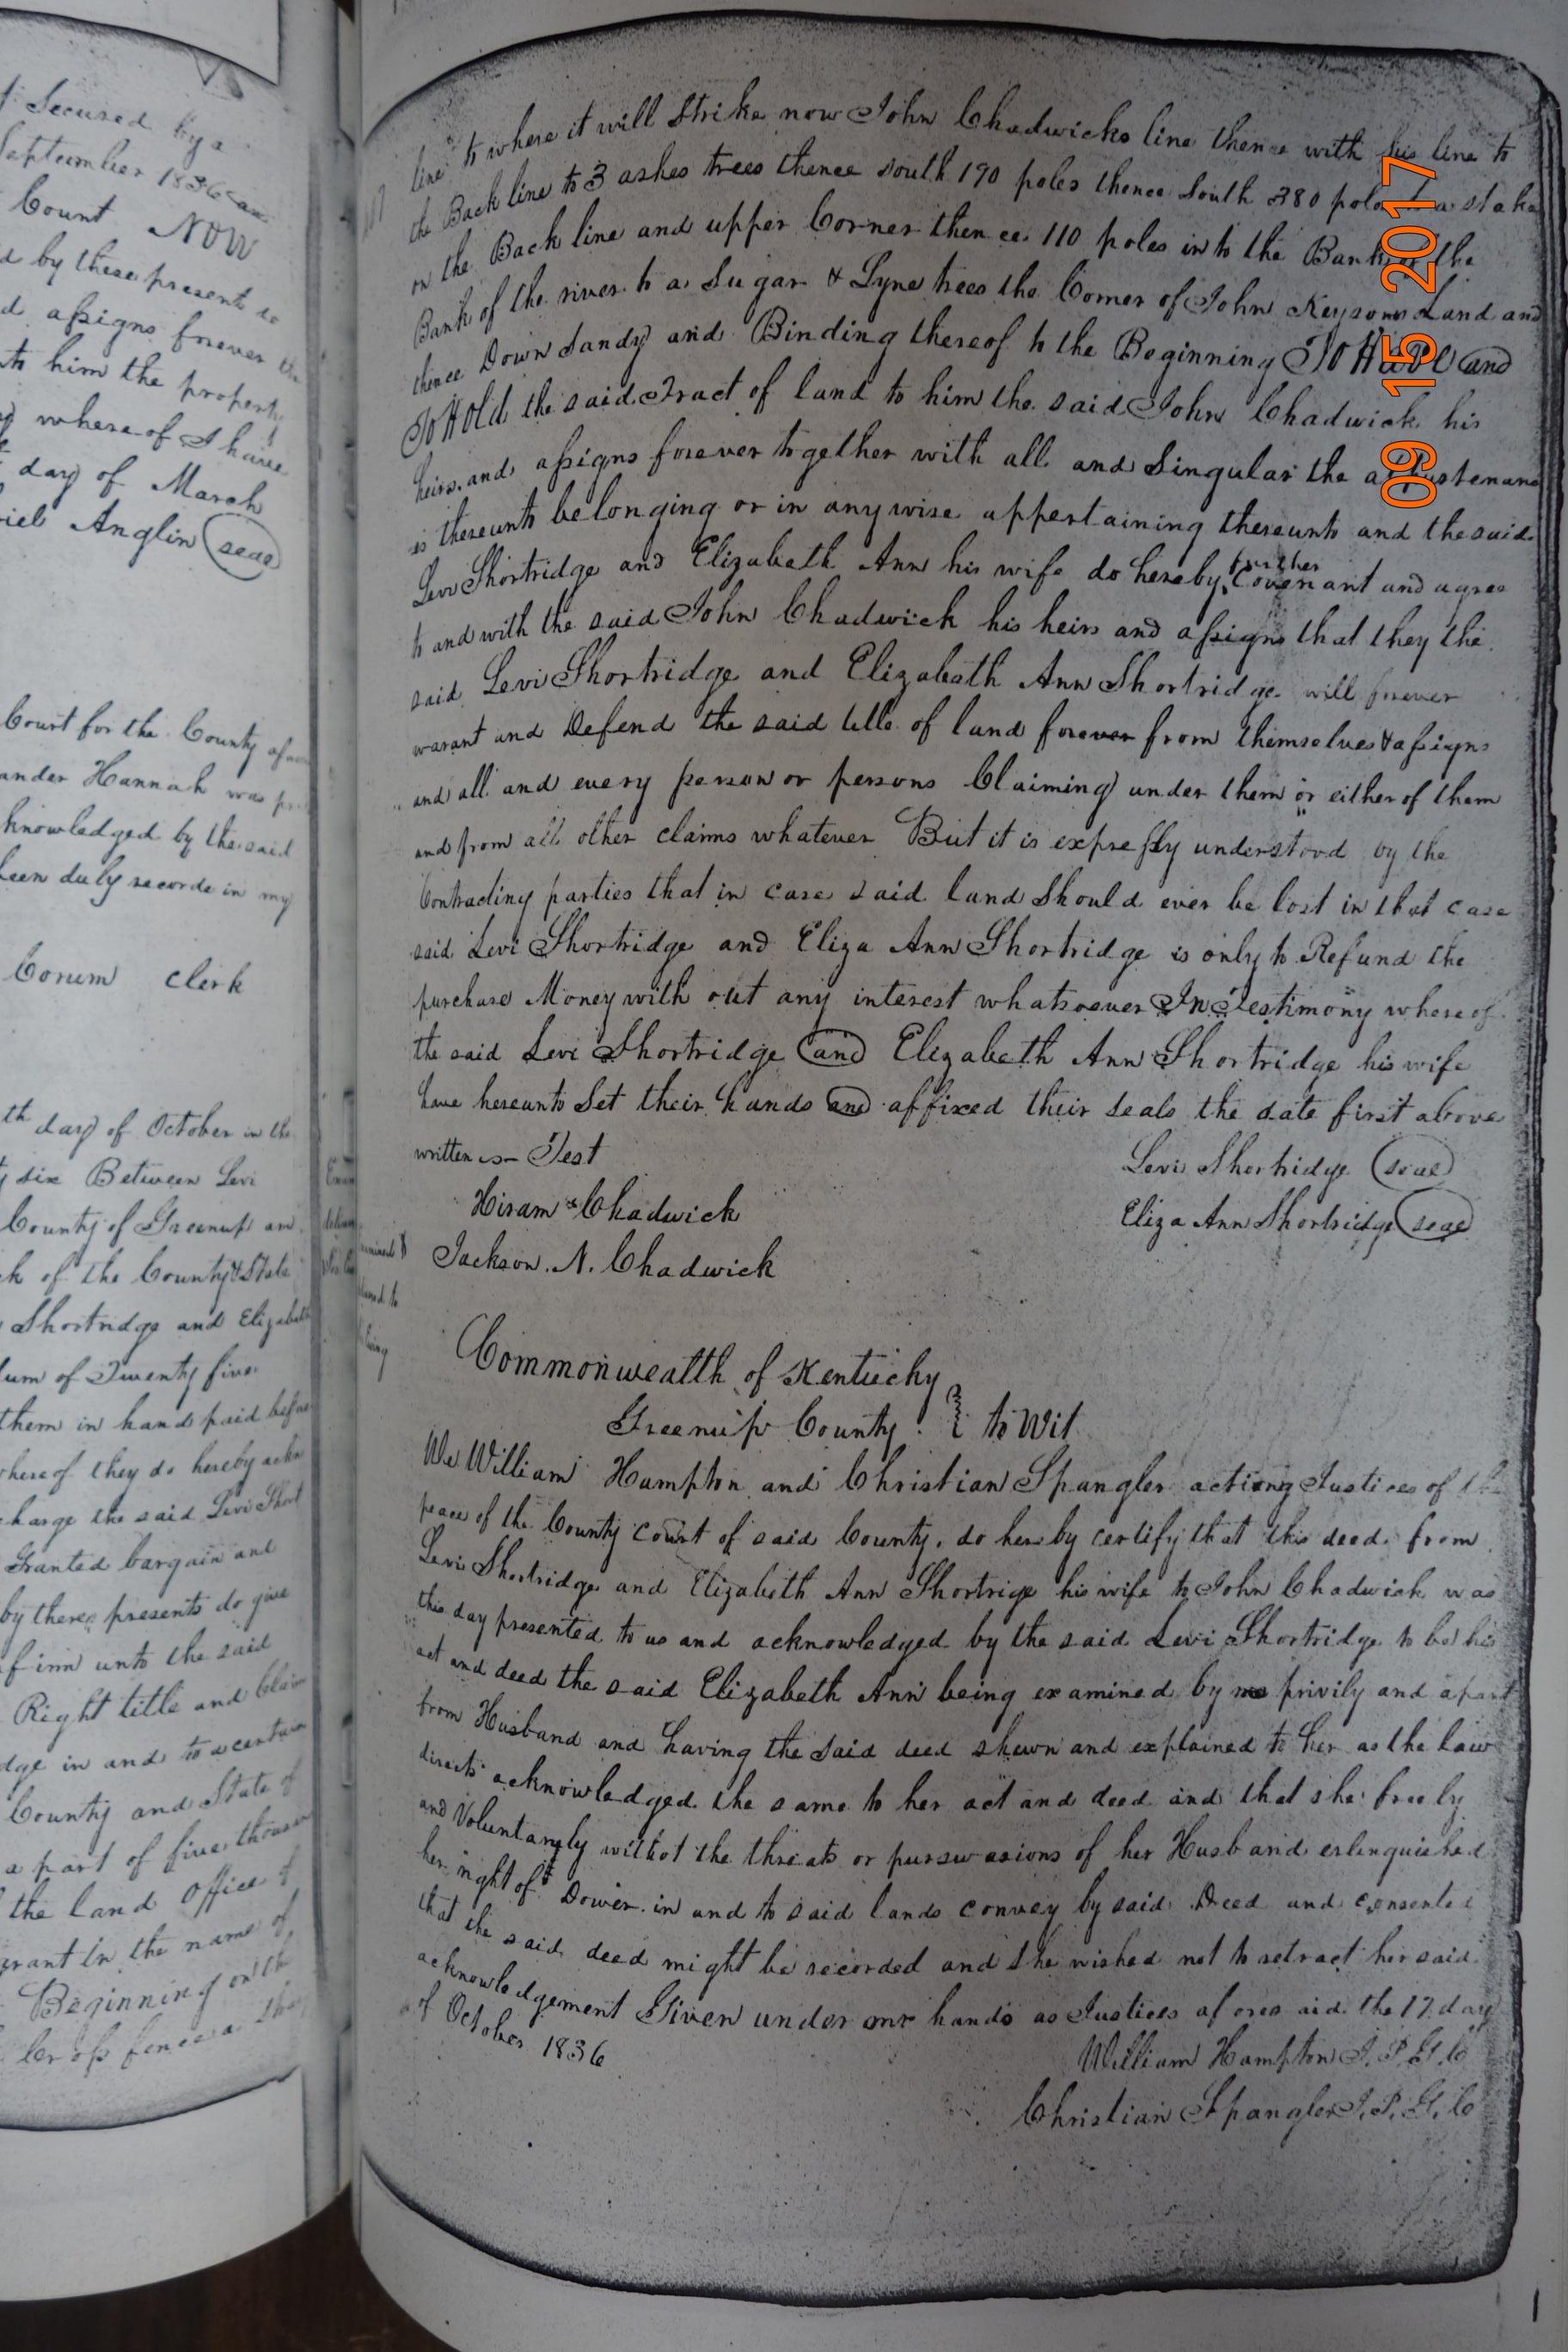 t Secured by a
September 1836
Count NOW
d by these presents
d assigns forever
to him the property
where of I have
day of March
riel Anglin seal
Court for the County of
ander Hannah was
knowledged by the said
been duly recorde in my
Corum Clerk
th day of October in the
six Between Levi
County of Greenup an
k of the County & State
Shortridge and Elizabeth
um of Twenty five
them in hand paid before
where of they do hereby ackn
charge the said Levi Short
Granted bargain and
by these presents do give
firm unto the said
Right title and Claim
dge in and to a certain
County and State of
a part of five thousan
the land office of
grant in the name of
Beginning on the
fence a
line to where it will Strike now John Chadwicks line thence with his line to
the Back line to 3 ashes trees thence South 190 poles thence South 380 poles to a stake
on the Back line and upper Corner then ce 110 poles into the Bank of the
Bank of the river to a Sugar & Lyne trees the Corner of John Keysons Land and
thence Down Sandy and Binding thereof to the Beginning TO HAVE and
TO HOLD the said Tract of land to him the said John Chadwick his
heirs and assigns forever together with all and Singular the appurtenanc
es thereunto belonging or in anywise appertaining thereunto and the said
Levi Shortridge and Elizabeth Ann his wife do hereby further Covenant and agree
to and with the said John Chadwick his heirs and assigns that they the
said Levi Shortridge and Elizabeth Ann Shortridge will forever
warant and Defend the said title of land forever from themselves & assigns
and all and every person or persons Claiming under them or either of them
and from all other claims whatever But it is expressly understood by the
Contracting parties that in case said land Should ever be lost in that case
said Levi Shortridge and Eliza Ann Shortridge is only to Refund the
purchase Money with out any interest whatsoever In Testimony where of
the said Levi Shortridge and Elizabeth Ann Shortridge his wife
have hereunto Set their hands and affixed their seals the date first above
written Test
Levi Shortridge seal
Hiram Chadwick
Eliza Ann Shortridge seal
Jackson. N. Chadwick
Commonwealth of Kentucky
Greenup County. to Wit
We William Hampton and Christian Spangler acting Justices of the
peace of the County Court of said County. do hereby certify that this deed from
Levi Shortridge and Elizabeth Ann Shortrige his wife to John Chadwick was
this day presented to us and acknowledged by the said Levi Shortridge to be his
act and deed the said Elizabeth Ann being examined by privily and apart
from Husband and having the Said deed shewn and explained to her as the law
directs acknowledged the same to her act and deed and that she freely
and Voluntaryly without the threats or purswasions of her Husband erlinquished
her right of Dower in and to said lands convey by said Deed and consented
that the said deed might be recorded and she wished not to retract her said
acknowledgement Given under our hands as Justices aforesaid the 17 day
of October 1836
William Hampton J. P. G. C
Christian Spangler J. P. G. C
09 15 2017